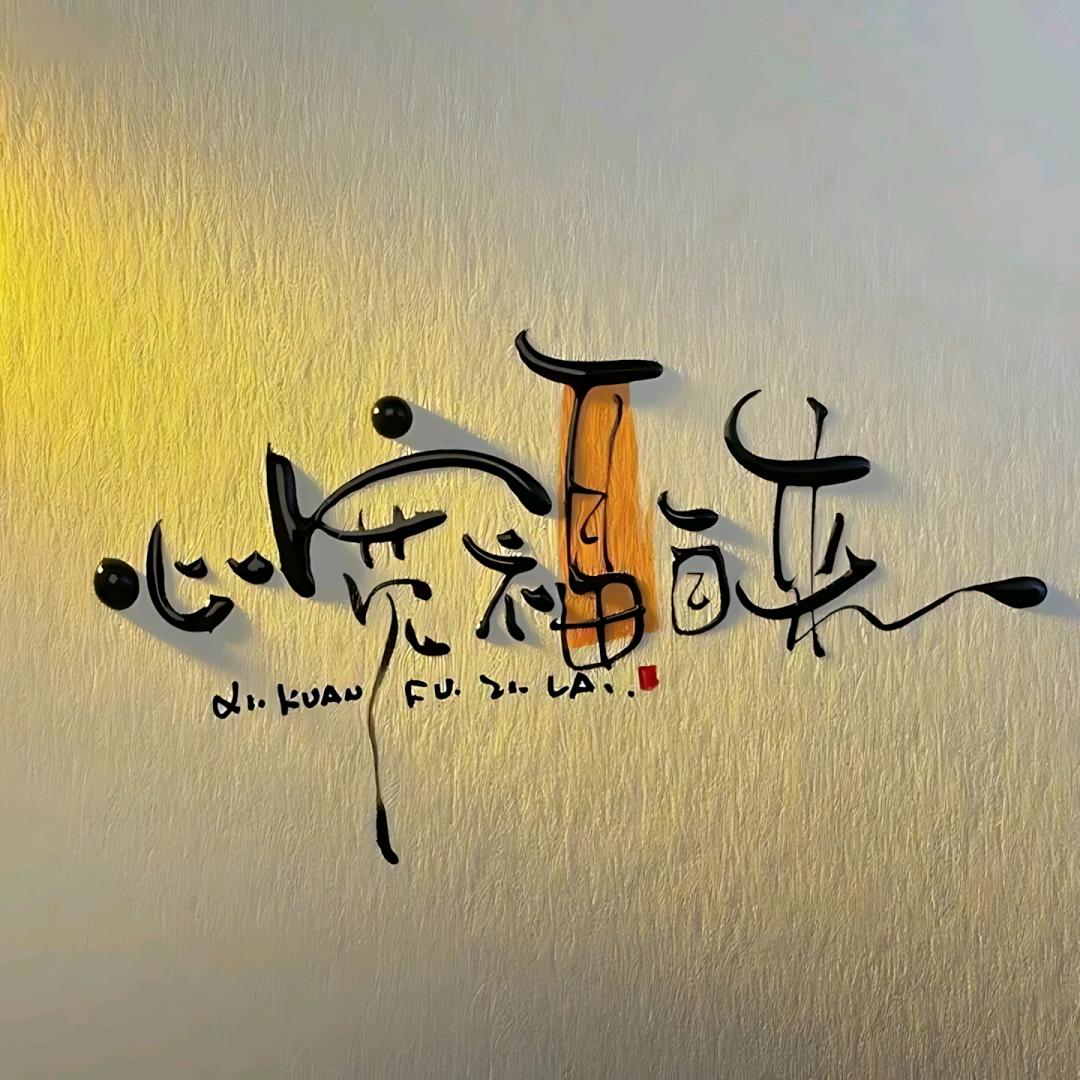 心宽福自来
XI. KUAN FU. ZI. LAI..